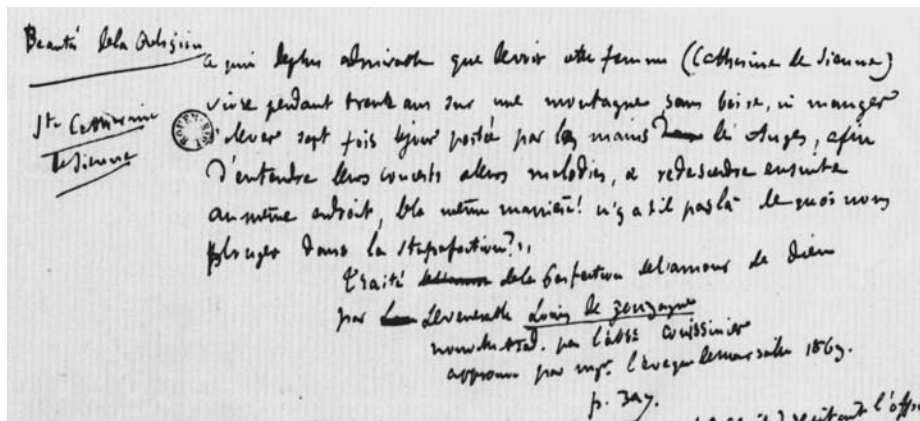 Beauté de la Religion
Ste Catherine
de Sienne
a quoi de plus admirable que de voir cette femme (Catherine de Sienne)
vivre pendant trente ans sur une montagne sans boire, ni manger
s'élever sept fois le jour portée par les mains des Anges, afin
d'entendre leurs concerts & leurs mélodies, & redescendre ensuite
au même endroit, de la même manière! n'y a-t-il pas là de quoi nous
plonger dans la stupéfaction?
Traité de la Perfection de l'amour de Dieu
par le venerable Louis de
nouv. trad. par l'abbé
approuvé par mgr. l'évêque de marseille 1869.
p.
récitant l'off